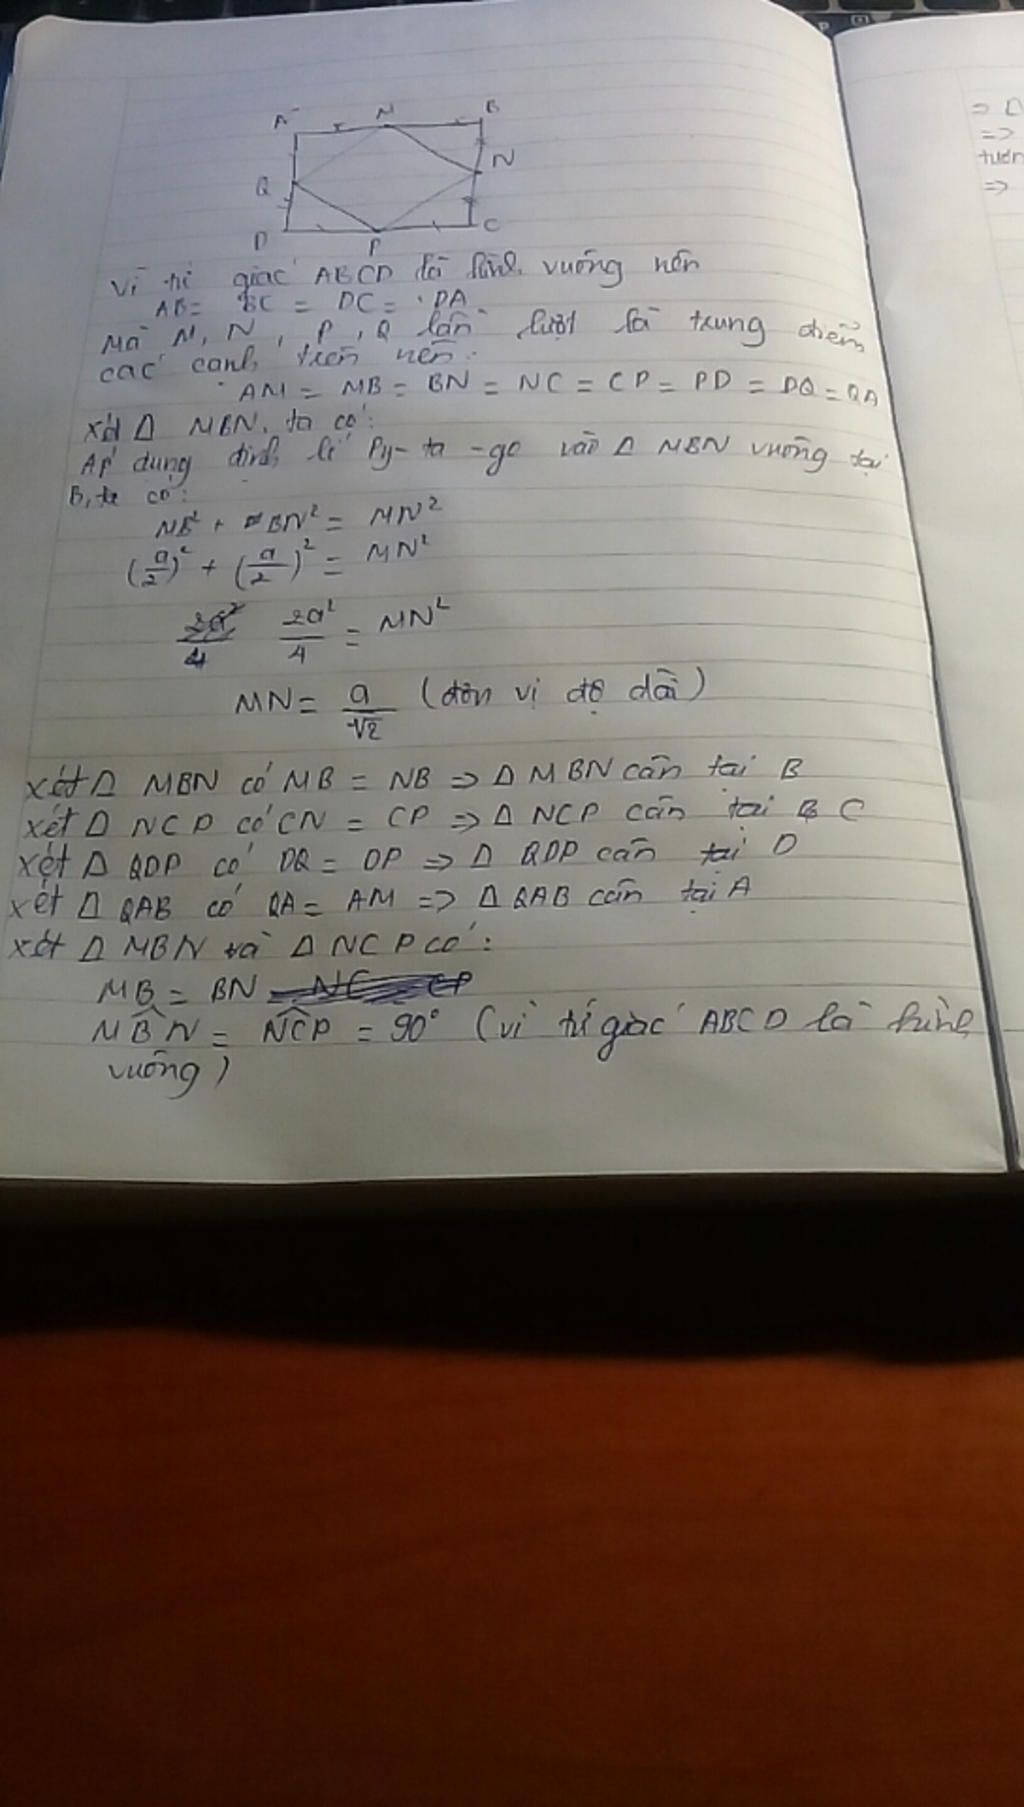 A M B
Q N
D P C
Vì tứ giác ABCD là hình vuông nên
AB = BC = DC = DA
Mà M, N, P, Q lần lượt là trung điểm
các cạnh trên nên:
AM = MB = BN = NC = CP = PD = DQ = QA
Xét Δ MBN, ta có:
Áp dụng định lí Py-ta-go vào Δ MBN vuông tại
B, ta có:
MB² + BN² = MN²
(a/2)² + (a/2)² = MN²
2a²/4 = MN²
MN = a/√2 (đơn vị độ dài)
Xét Δ MBN có MB = NB => Δ MBN cân tại B
Xét Δ NCP có CN = CP => Δ NCP cân tại C
Xét Δ QDP có DQ = DP => Δ QDP cân tại D
Xét Δ QAB có QA = AM => Δ QAB cân tại A
Xét Δ MBN và Δ NCP có:
MB = BN
MB̂N = NĈP = 90° (vì tứ giác ABCD là hình
vuông)
=> Δ
=>
=>